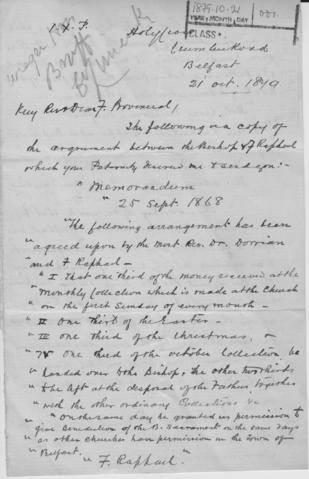 I.X.F.
1879-10-21
YEAR MONTH DAY
001.
CLASS
Holy Cross
Crumlin Road
Belfast
21 Oct. 1879
Very Rev Dear F. Provincial,
The following is a copy of
the argument between the Bishop & F Raphael
which your Paternity desired me to send you:-
"Memorandum
"25 Sept. 1868
"The following arrangement has been
"agreed upon by the Most Rev. Dr. Dorrian
"and F Raphael -
"I That one third of the money received at the
"Monthly Collection which is made at the Church
"on the first Sunday of every month -
"II One third of the Easter -
"III One third of the Christmas, &
"IV One third of the October Collection, be
"handed over to the Bishop, the other two thirds
"to be left at the disposal of the Fathers together
"with the other ordinary Collections &c
"On the same day he granted us permission to
"give Benediction of the B. Sacrament on the same days
"as other Churches have permission in the town of
"Belfast.
"F. Raphael"